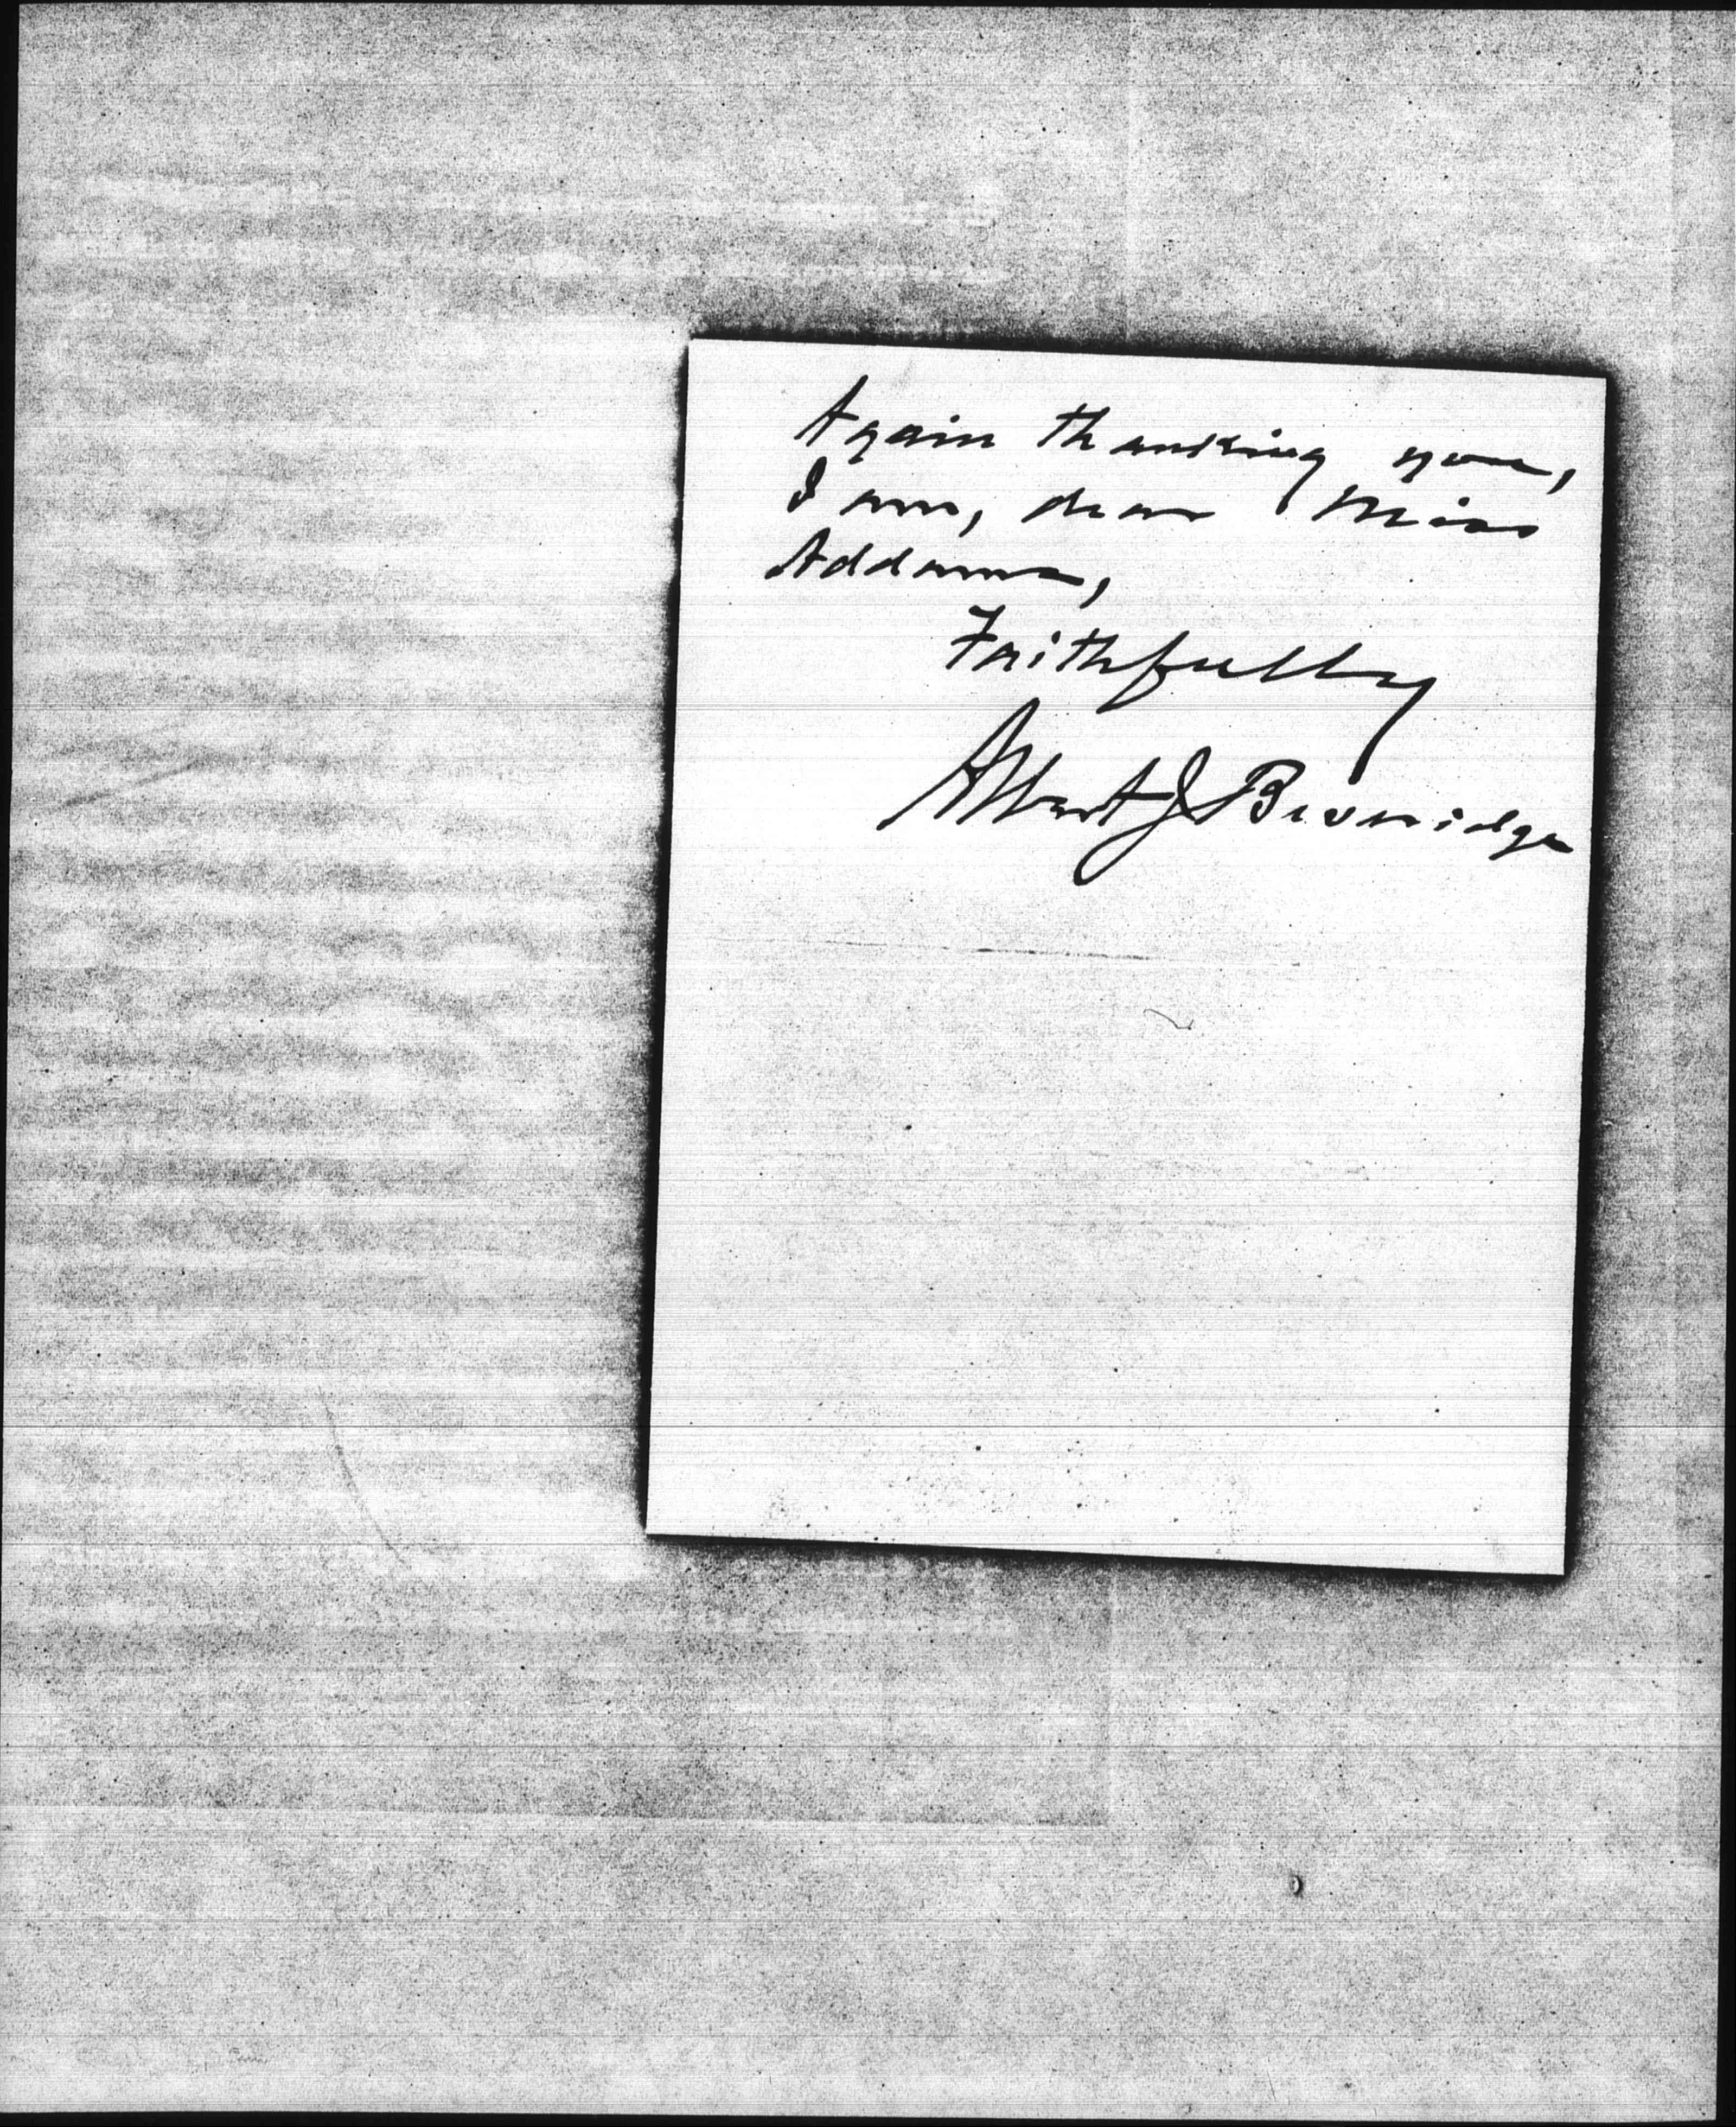 Again thanking you,
I am, dear Miss
Addams,
Faithfully
Albert J Beveridge